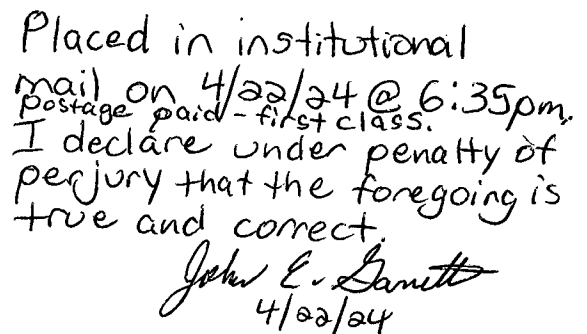 Placed in institutional
mail on 4/22/24 @ 6:35pm.
postage paid - first class.
I declare under penalty of
perjury that the foregoing is
true and correct.
John E. Garrett
4/22/24